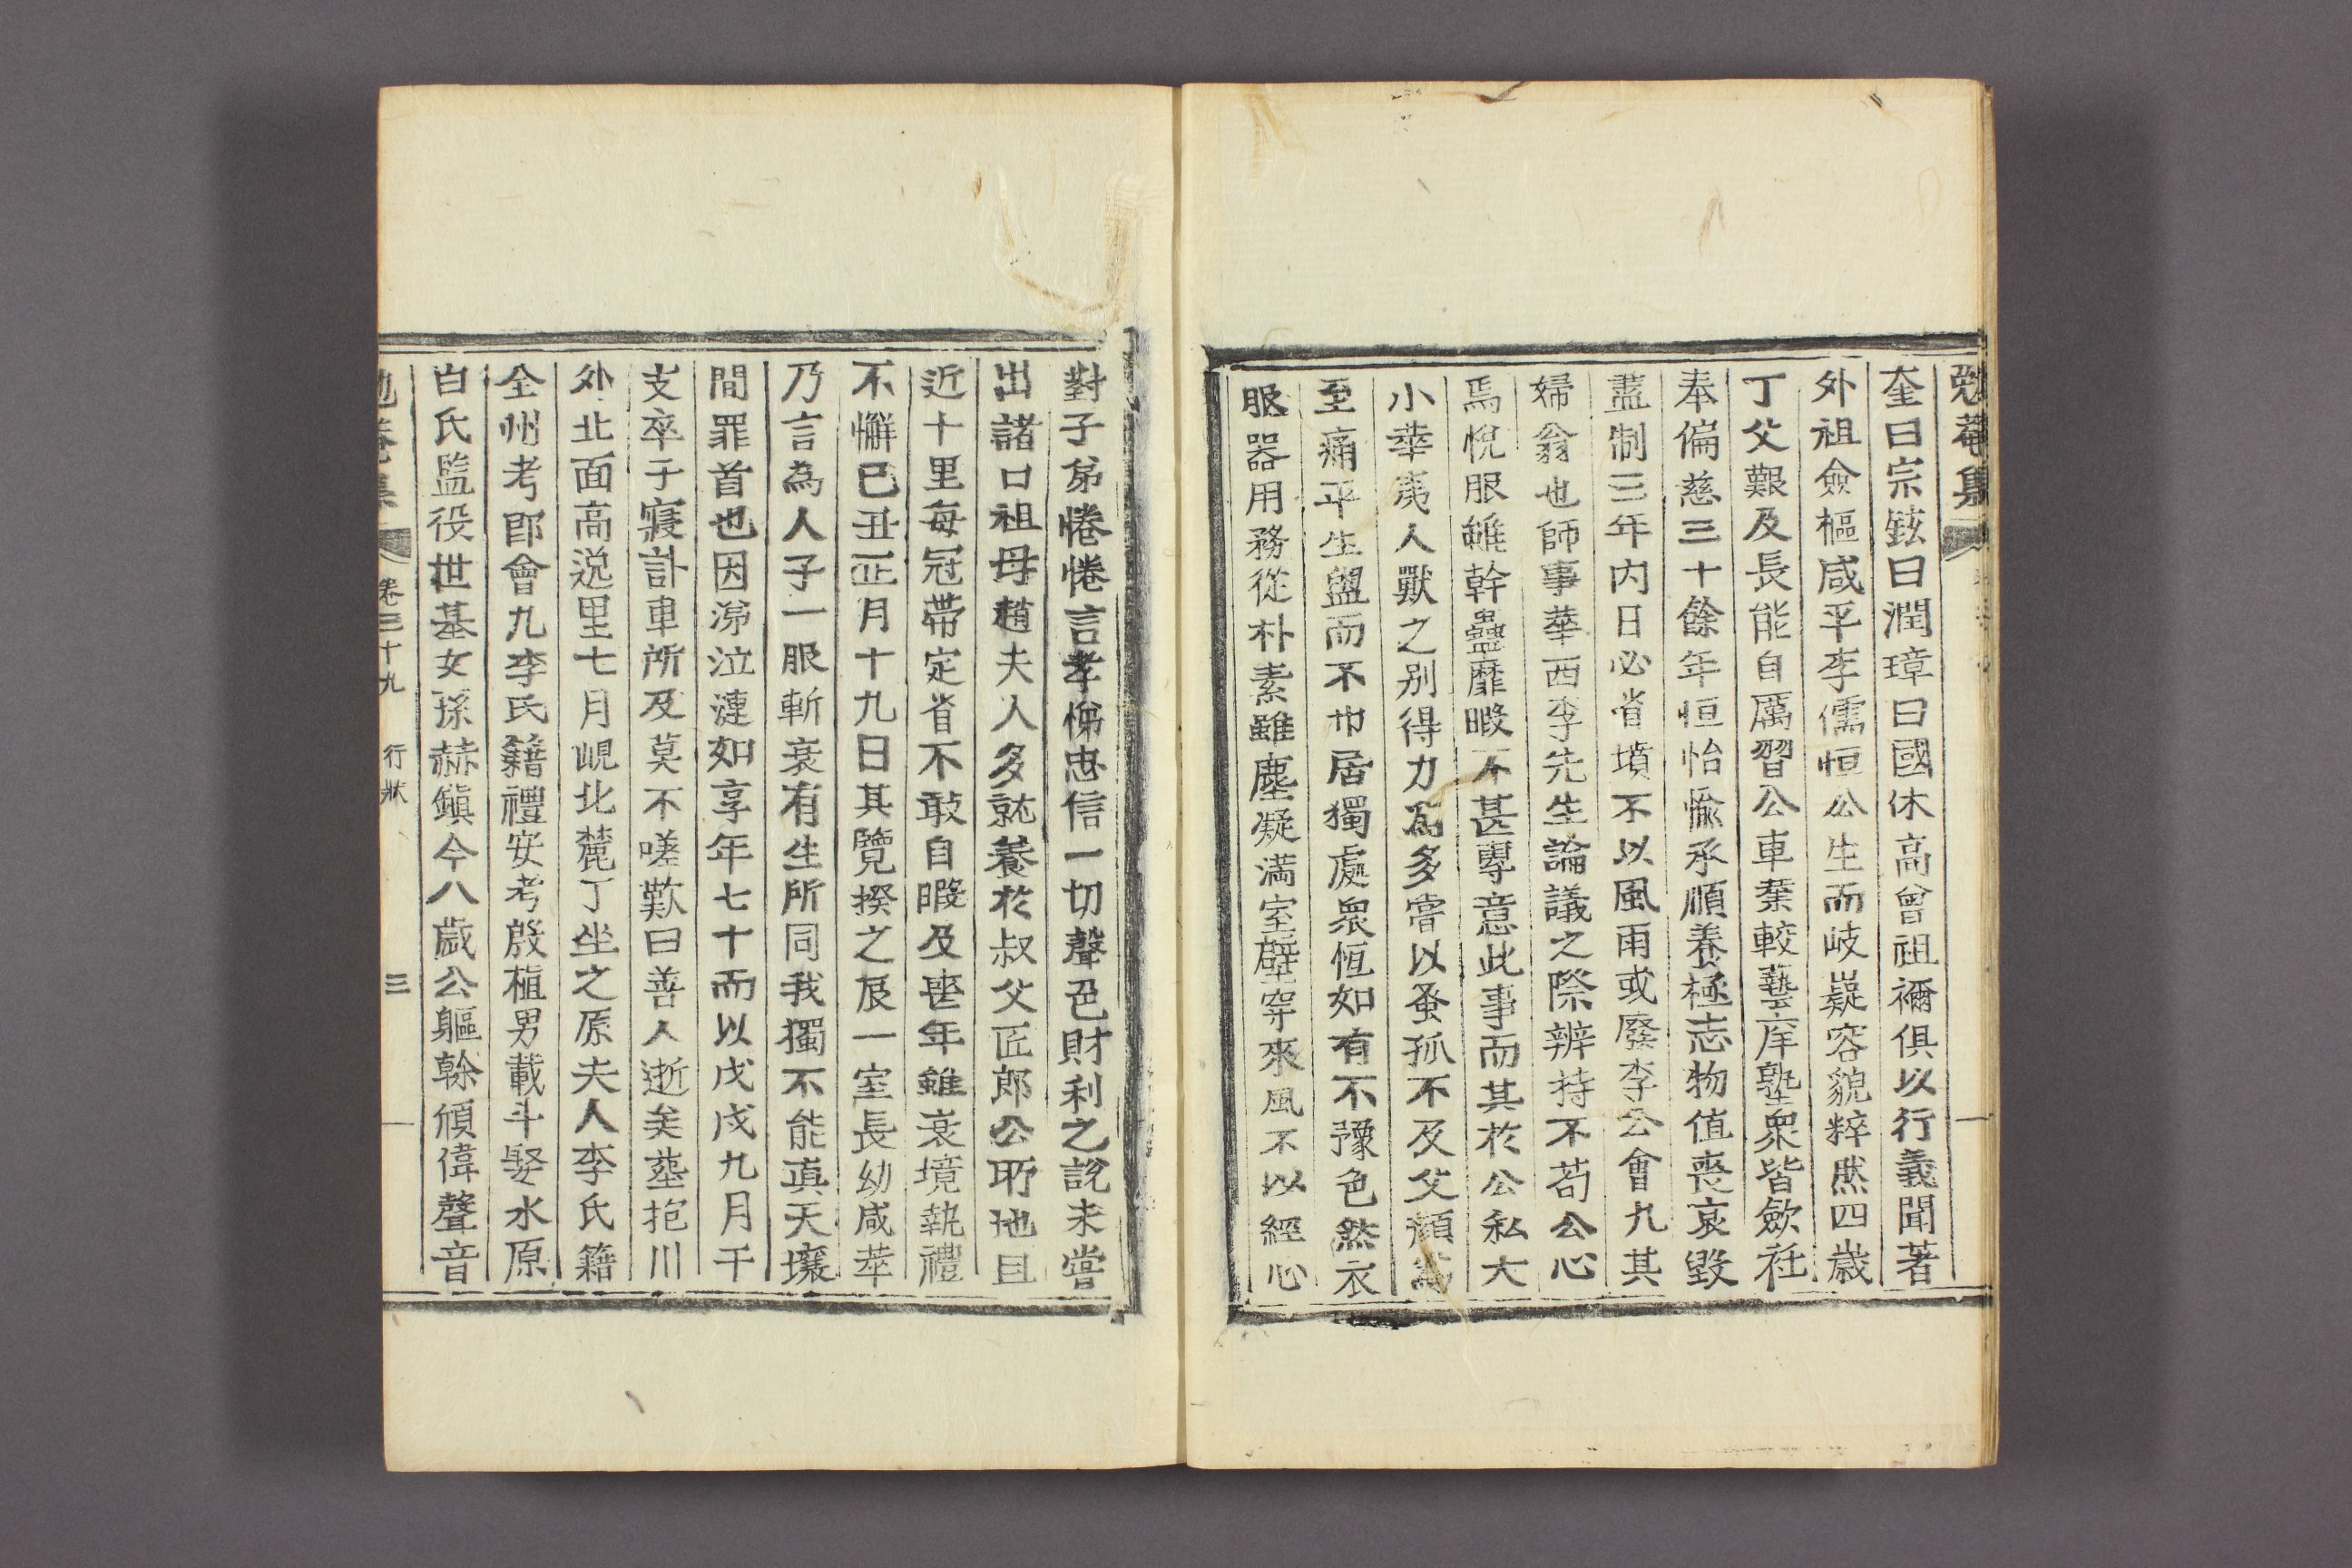 勉菴集
奎曰宗鉉曰潤璋曰國休高曾祖禰俱以行義聞著
外祖僉樞咸平李儒恒公生而岐嶷容貌粹然四歲
丁父艱及長能自厲習公車業較藝庠塾衆皆歛衽
奉偏慈三十餘年恒怡愉承順養極志物值喪哀毀
盖制三年內日必省墳不以風雨或廢李公會九其
婦翁也師事華西李先生論議之際辨持不苟公心
焉悅服雖幹蠱靡暇不甚專意此事而其於公私大
小華夷人獸之別得力爲多嘗以蚤孤不及父顏爲
至痛平生盥而不巾居獨處衆恒如有不豫色然衣
服器用務從朴素雖塵凝滿室壁穿來風不以經心
對子弟惓惓言孝悌忠信一切聲色財利之說未嘗
出諸口祖母趙夫人多就養於叔父匠郎公所地且
近十里每冠帶定省不敢自暇及喪年雖衰境執禮
不懈己丑正月十九日其覽揆之辰一室長幼咸萃
乃言為人子一服斬衰有生所同我獨不能眞天壤
間罪首也因涕泣漣如享年七十而以戊戌九月干
支卒于寢訃車所及莫不嗟歎曰善人逝矣葬抱川
外北面高說里七月峴北麓丁坐之原夫人李氏籍
全州考卽會九李氏籍禮安考殷植男載斗娶水原
白氏監役世基女孫赫鎭今八歲公軀幹頎偉聲音
勉菴集 卷三十九 行狀 三